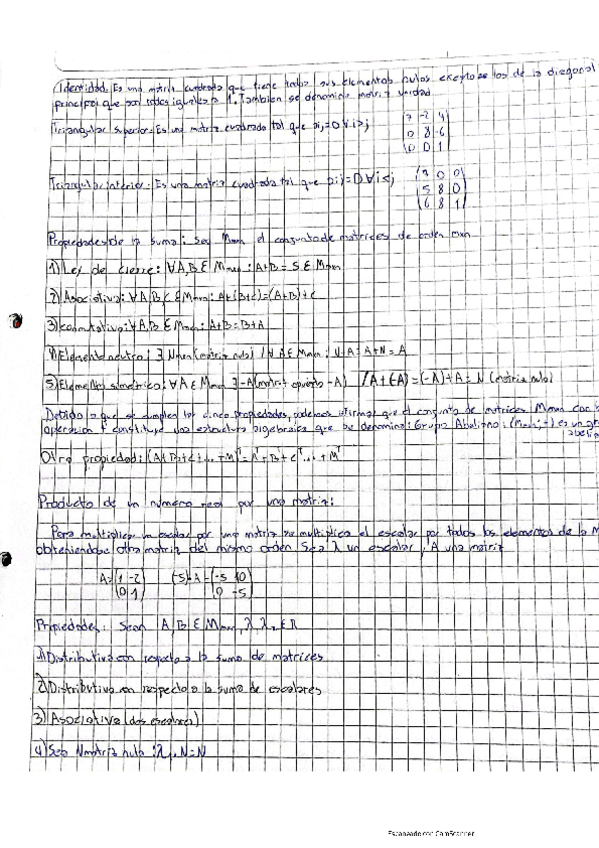 Identidad: Es una matriz cuadrada que tiene todos sus elementos nulos excepto los de la diagonal
principal que son todos iguales a 1. Tambien se denomina matriz unidad
Triangular superior: Es una matriz cuadrada tal que aij=0 ∀ i>j (7 -2 4
0 8 -6
0 0 1)
Triangular inferior: Es una matriz cuadrada tal que aij=0 ∀ i<j (3 0 0
5 8 0
6 8 1)
Propiedades de la suma: Sea Mmxn el conjunto de matrices de orden mxn
1) Ley de cierre: ∀A,B∈Mmxn : A+B = S∈Mmxn
2) Asociativa: ∀A,B,C∈Mmxn: A+(B+C)=(A+B)+C
3) conmutativa: ∀A,B∈Mmxn: A+B=B+A
4) Elemento neutro: ∃ Nmxn (matriz nula) / ∀A∈Mmxn: N+A=A+N=A
5) Elemento simetrico: ∀A∈Mmxn ∃-A (matriz opuesta -A) /A+(-A)=(-A)+A=N (matriz nula)
Debido a que se cumplen las cinco propiedades, podemos afirmar que el conjunto de matrices Mmxn con
operacion + constituye una estructura algebraica que se denomina: Grupo Abeliano: (Mmxn;+) es un
Otra propiedad: (A+B+C+...+M)ᵀ=Aᵀ+Bᵀ+Cᵀ...+Mᵀ
Producto de un numero real por una matriz:
Para multiplicar un escalar por una matriz se multiplica el escalar por todos los elementos de la
obteniendose otra matriz del mismo orden Sea λ un escalar, A una matriz
A=(1 -2) (-5)·A=(-5 10)
(0 1) (0 -5)
Propiedades: Sean A,B∈Mmxn, λ, λ, ∈R
1) Distributiva con respecto a la suma de matrices
2) Distributiva con respecto a la suma de escalares
3) Asociativa (dos escalares)
4) Sea N matriz nula: λ.N=N
Escaneado con CamScanner